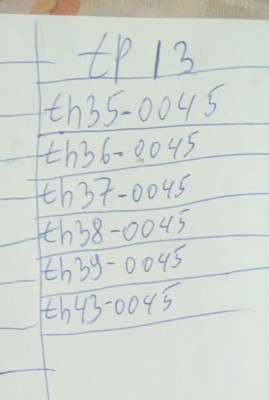 tp 13
th35-0045
th36-0045
th37-0045
th38-0045
th39-0045
th43-0045